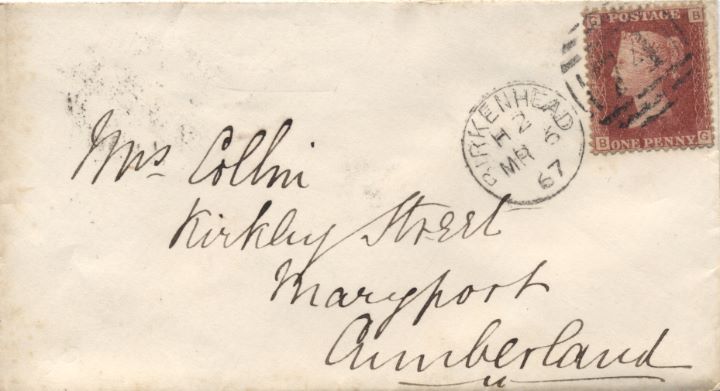 G POSTAGE B
B ONE PENNY G
BIRKENHEAD
H 2
MR 6
67
Mrs Collin
Kirkby Street
Maryport
Cumberland